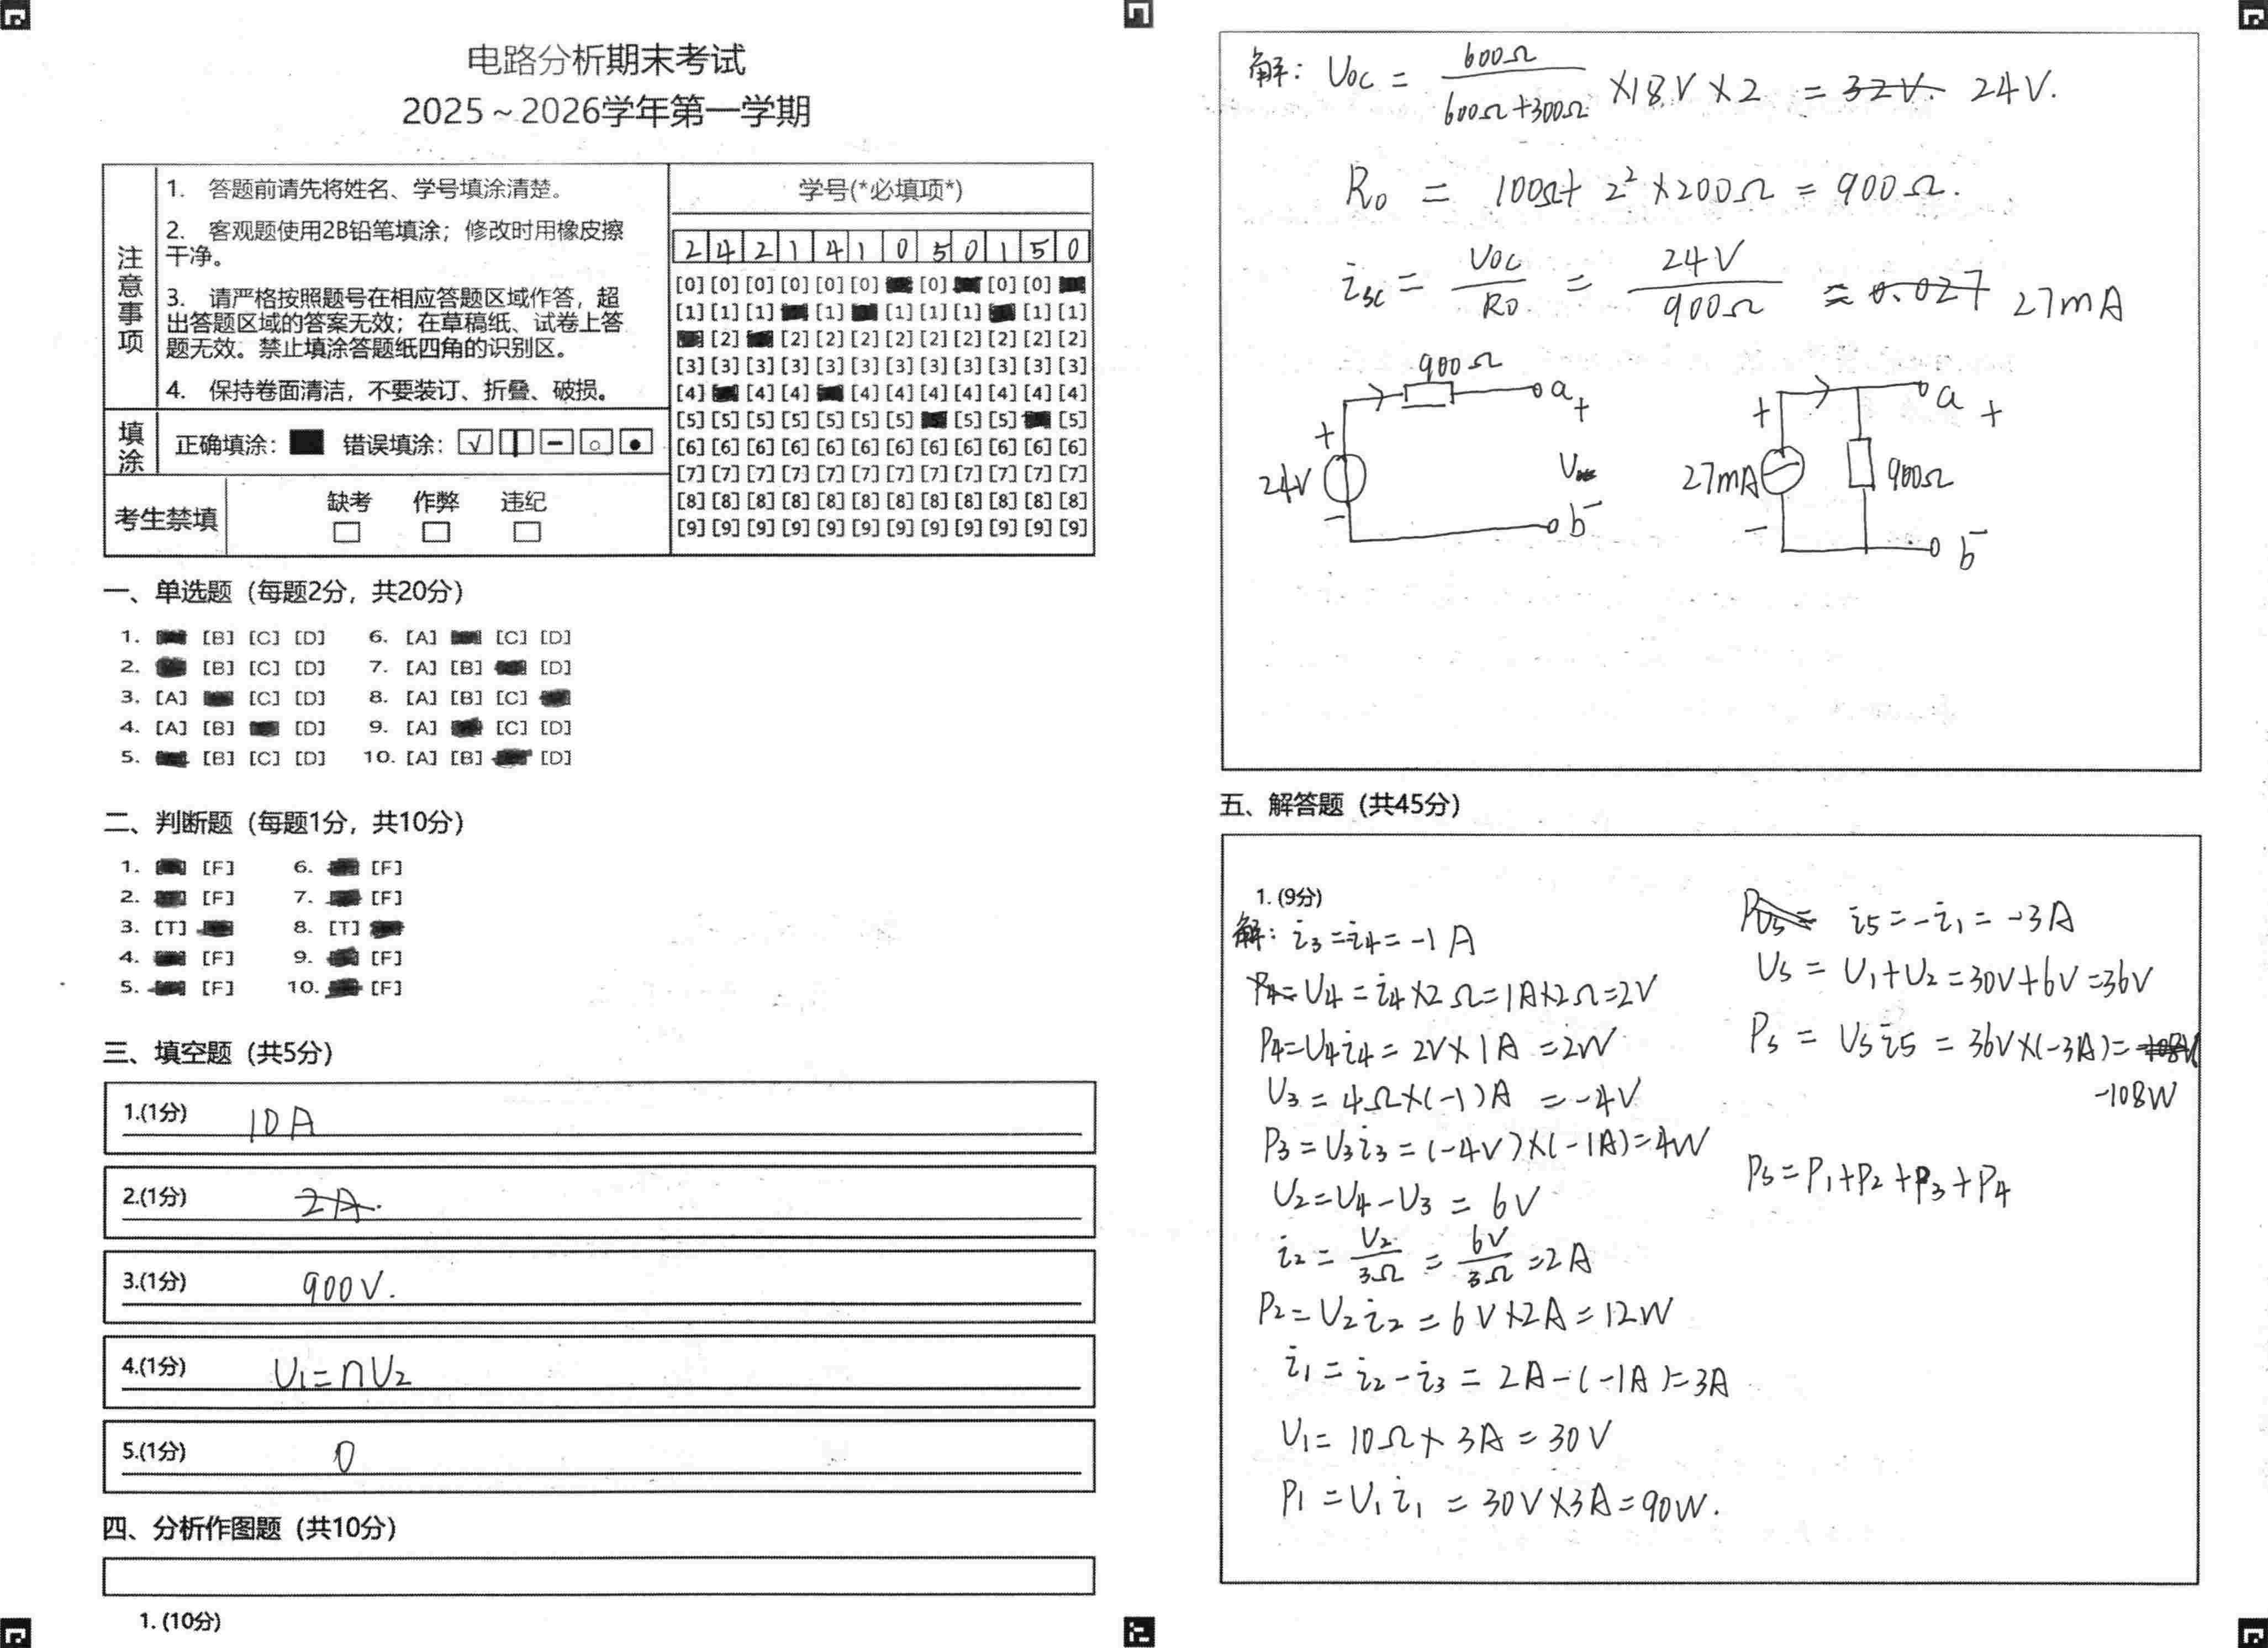 电路分析期末考试
2025～2026学年第一学期
注意事项
1. 答题前请先将姓名、学号填涂清楚。
2. 客观题使用2B铅笔填涂；修改时用橡皮擦
干净。
3. 请严格按照题号在相应答题区域作答，超
出答题区域的答案无效；在草稿纸、试卷上答
题无效。禁止填涂答题纸四角的识别区。
4. 保持卷面清洁，不要装订、折叠、破损。
填涂
正确填涂： 错误填涂：
考生禁填
缺考 作弊 违纪
学号(*必填项*)
2 4 2 1 4 1 0 5 0 1 5 0
[0] [0] [0] [0] [0] [0] [0] [0] [0]
[1] [1] [1] [1] [1] [1] [1] [1] [1]
[2] [2] [2] [2] [2] [2] [2] [2] [2] [2]
[3] [3] [3] [3] [3] [3] [3] [3] [3] [3] [3] [3]
[4] [4] [4] [4] [4] [4] [4] [4] [4] [4]
[5] [5] [5] [5] [5] [5] [5] [5] [5] [5]
[6] [6] [6] [6] [6] [6] [6] [6] [6] [6] [6] [6]
[7] [7] [7] [7] [7] [7] [7] [7] [7] [7] [7] [7]
[8] [8] [8] [8] [8] [8] [8] [8] [8] [8] [8] [8]
[9] [9] [9] [9] [9] [9] [9] [9] [9] [9] [9] [9]
一、单选题（每题2分，共20分）
1. [B] [C] [D] 6. [A] [C] [D]
2. [B] [C] [D] 7. [A] [B] [D]
3. [A] [C] [D] 8. [A] [B] [C]
4. [A] [B] [D] 9. [A] [C] [D]
5. [B] [C] [D] 10. [A] [B] [D]
二、判断题（每题1分，共10分）
1. [F] 6. [F]
2. [F] 7. [F]
3. [T] 8. [T]
4. [F] 9. [F]
5. [F] 10. [F]
三、填空题（共5分）
1.(1分) 10A
2.(1分) 2A.
3.(1分) 900V.
4.(1分) U₁=nU₂
5.(1分) 0
四、分析作图题（共10分）
1. (10分)
解: Uoc = 600Ω/(600Ω+300Ω) ×18V×2 = 32V. 24V.
R₀ = 100Ω+ 2²×200Ω = 900Ω.
isc = Uoc/R₀ = 24V/900Ω ≈ 0.027 27mA
900Ω
a
+
+
24V
-
b
-
+
a
+
27mA
900Ω
-
b
-
五、解答题（共45分）
1. (9分)
解: i₃=i₄=-1A
P₄= U₄=i₄×2Ω=1A×2Ω=2V
P₄=U₄i₄=2V×1A=2W
U₃=4Ω×(-1)A=-4V
P₃=U₃i₃=(-4V)×(-1A)=4W
U₂=U₄-U₃=6V
i₂=U₂/3Ω=6V/3Ω=2A
P₂=U₂i₂=6V×2A=12W
i₁=i₂-i₃=2A-(-1A)=3A
U₁=10Ω×3A=30V
P₁=U₁i₁=30V×3A=90W.
i₅=-i₁=-3A
U₅=U₁+U₂=30V+6V=36V
P₅=U₅i₅=36V×(-3A)=
-108W
P₅=P₁+P₂+P₃+P₄